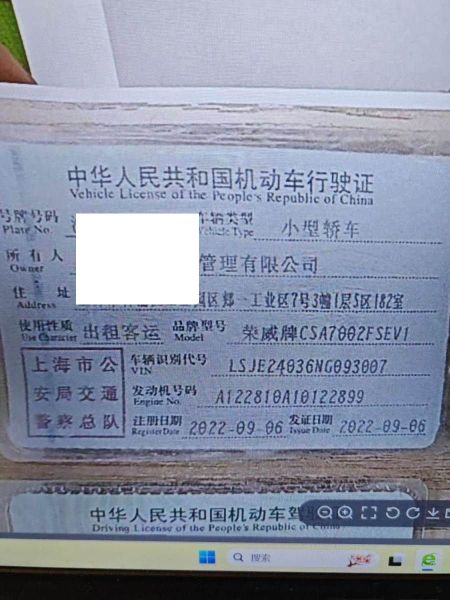 中华人民共和国机动车行驶证
Vehicle License of the People's Republic of China
号牌号码 车辆类型 小型轿车
Plate No. Vehicle Type
所有人 管理有限公司
Owner
住址 一工业区7号3幢1层S区182室
Address
使用性质 出租客运 品牌型号 荣威牌CSA7002FSEV1
Use Character Model
上海市公 车辆识别代号 LSJE24036NG093007
VIN
安局交通 发动机号码 A122810A10122899
Engine No.
警察总队 注册日期 2022-09-06 发证日期 2022-09-06
Register Date Issue Date
中华人民共和国机动车驾
Driving License of the People's Republic of China
搜索